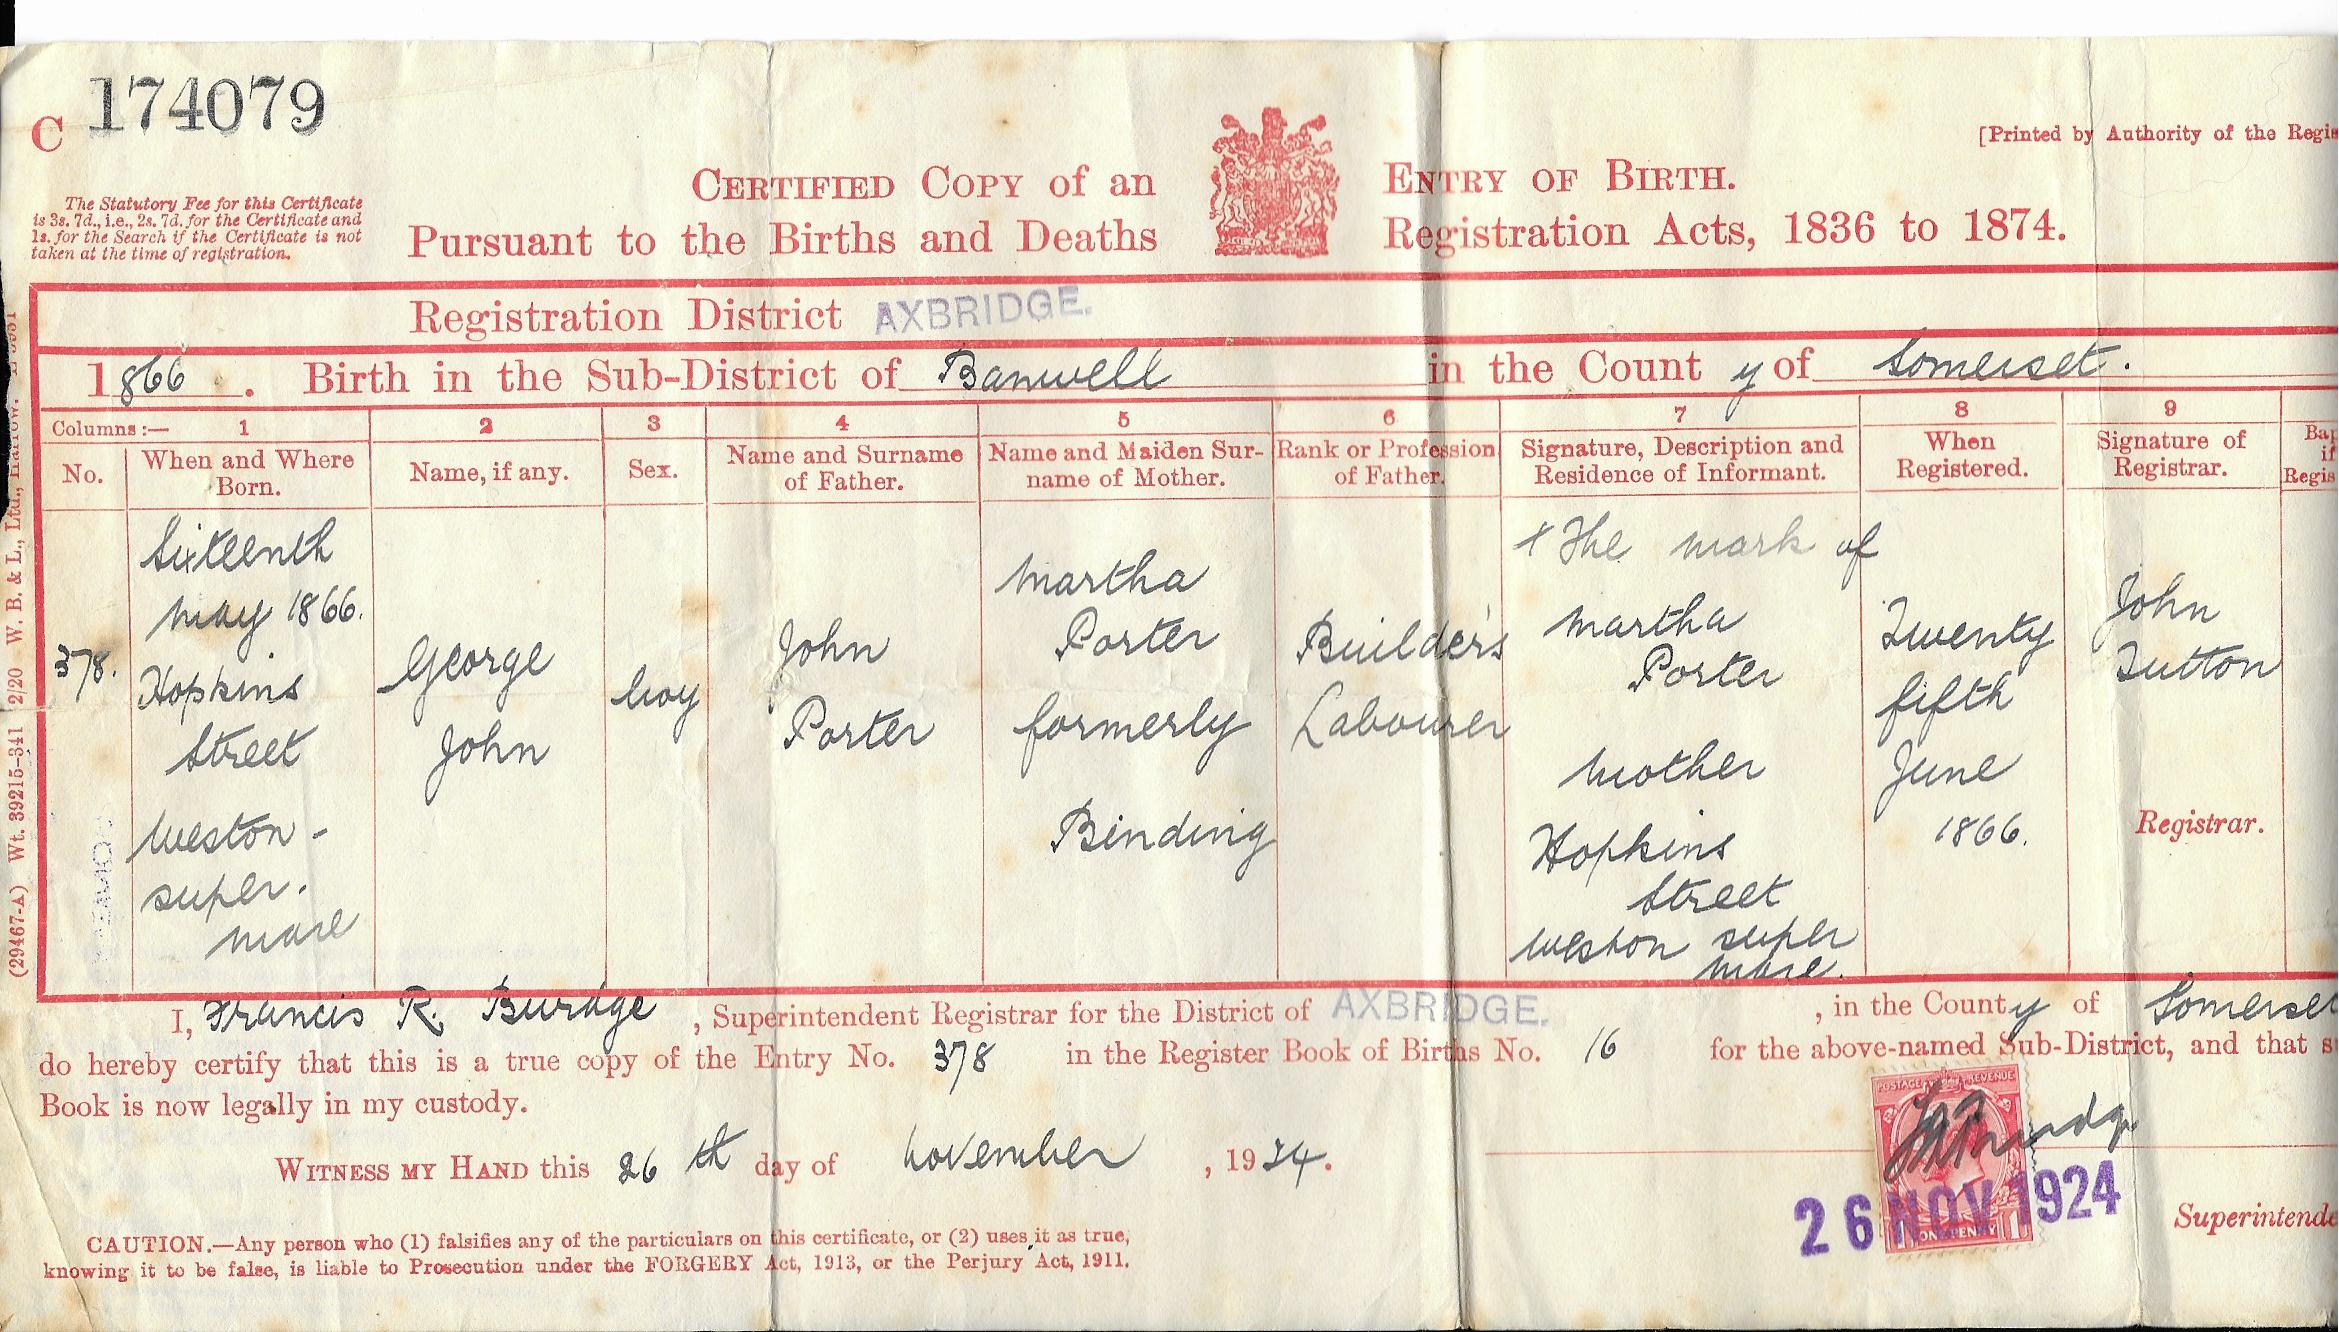 C 174079
[Printed by Authority of the Regis
The Statutory Fee for this Certificate
is 3s. 7d., i.e., 2s. 7d. for the Certificate and
1s. for the Search if the Certificate is not
taken at the time of registration.
CERTIFIED COPY of an ENTRY OF BIRTH.
Pursuant to the Births and Deaths Registration Acts, 1836 to 1874.
Registration District AXBRIDGE.
1866. Birth in the Sub-District of Banwell in the County of Somerset.
Columns:— 1 2 3 4 5 6 7 8 9
No.
When and Where
Born.
Name, if any.
Sex.
Name and Surname
of Father.
Name and Maiden Sur-
name of Mother.
Rank or Profession
of Father.
Signature, Description and
Residence of Informant.
When
Registered.
Signature of
Registrar.
Bap
if
Regis
378.
Sixteenth
May 1866.
Hopkins
Street
Weston-
super.
mare
George
John
boy
John
Porter
Martha
Porter
formerly
Binding
Builder's
Labourer
x The mark of
Martha
Porter
Mother
Hopkins
Street
Weston super
mare.
Twenty
fifth
June
1866.
John
Tutton
Registrar.
I, Francis R. Burdge, Superintendent Registrar for the District of AXBRIDGE. , in the County of Somerset
do hereby certify that this is a true copy of the Entry No. 378 in the Register Book of Births No. 16 for the above-named Sub-District, and that s
Book is now legally in my custody.
WITNESS MY HAND this 26th day of November , 1924.
POSTAGE REVENUE
ONE PENNY
26 NOV 1924
Superintende
CAUTION.—Any person who (1) falsifies any of the particulars on this certificate, or (2) uses it as true,
knowing it to be false, is liable to Prosecution under the FORGERY Act, 1913, or the Perjury Act, 1911.
(29467-A) Wt. 39215-341 2/20 W. B. & L., Ltd., Harrow.